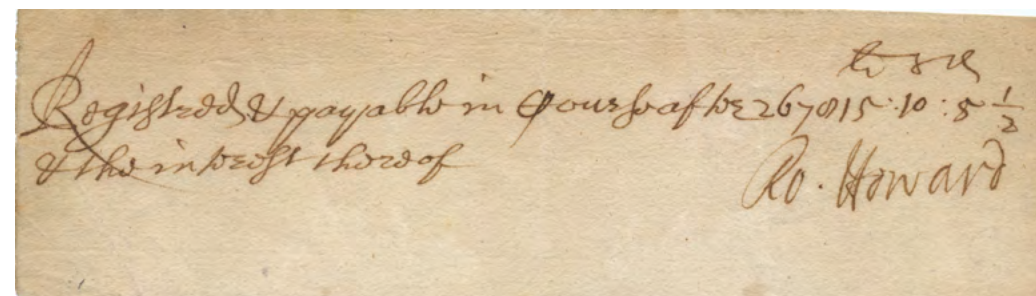 li s d
Registred & payable in Course after 267815 : 10 : 5 1/2
& the interest thereof
Ro. Howard